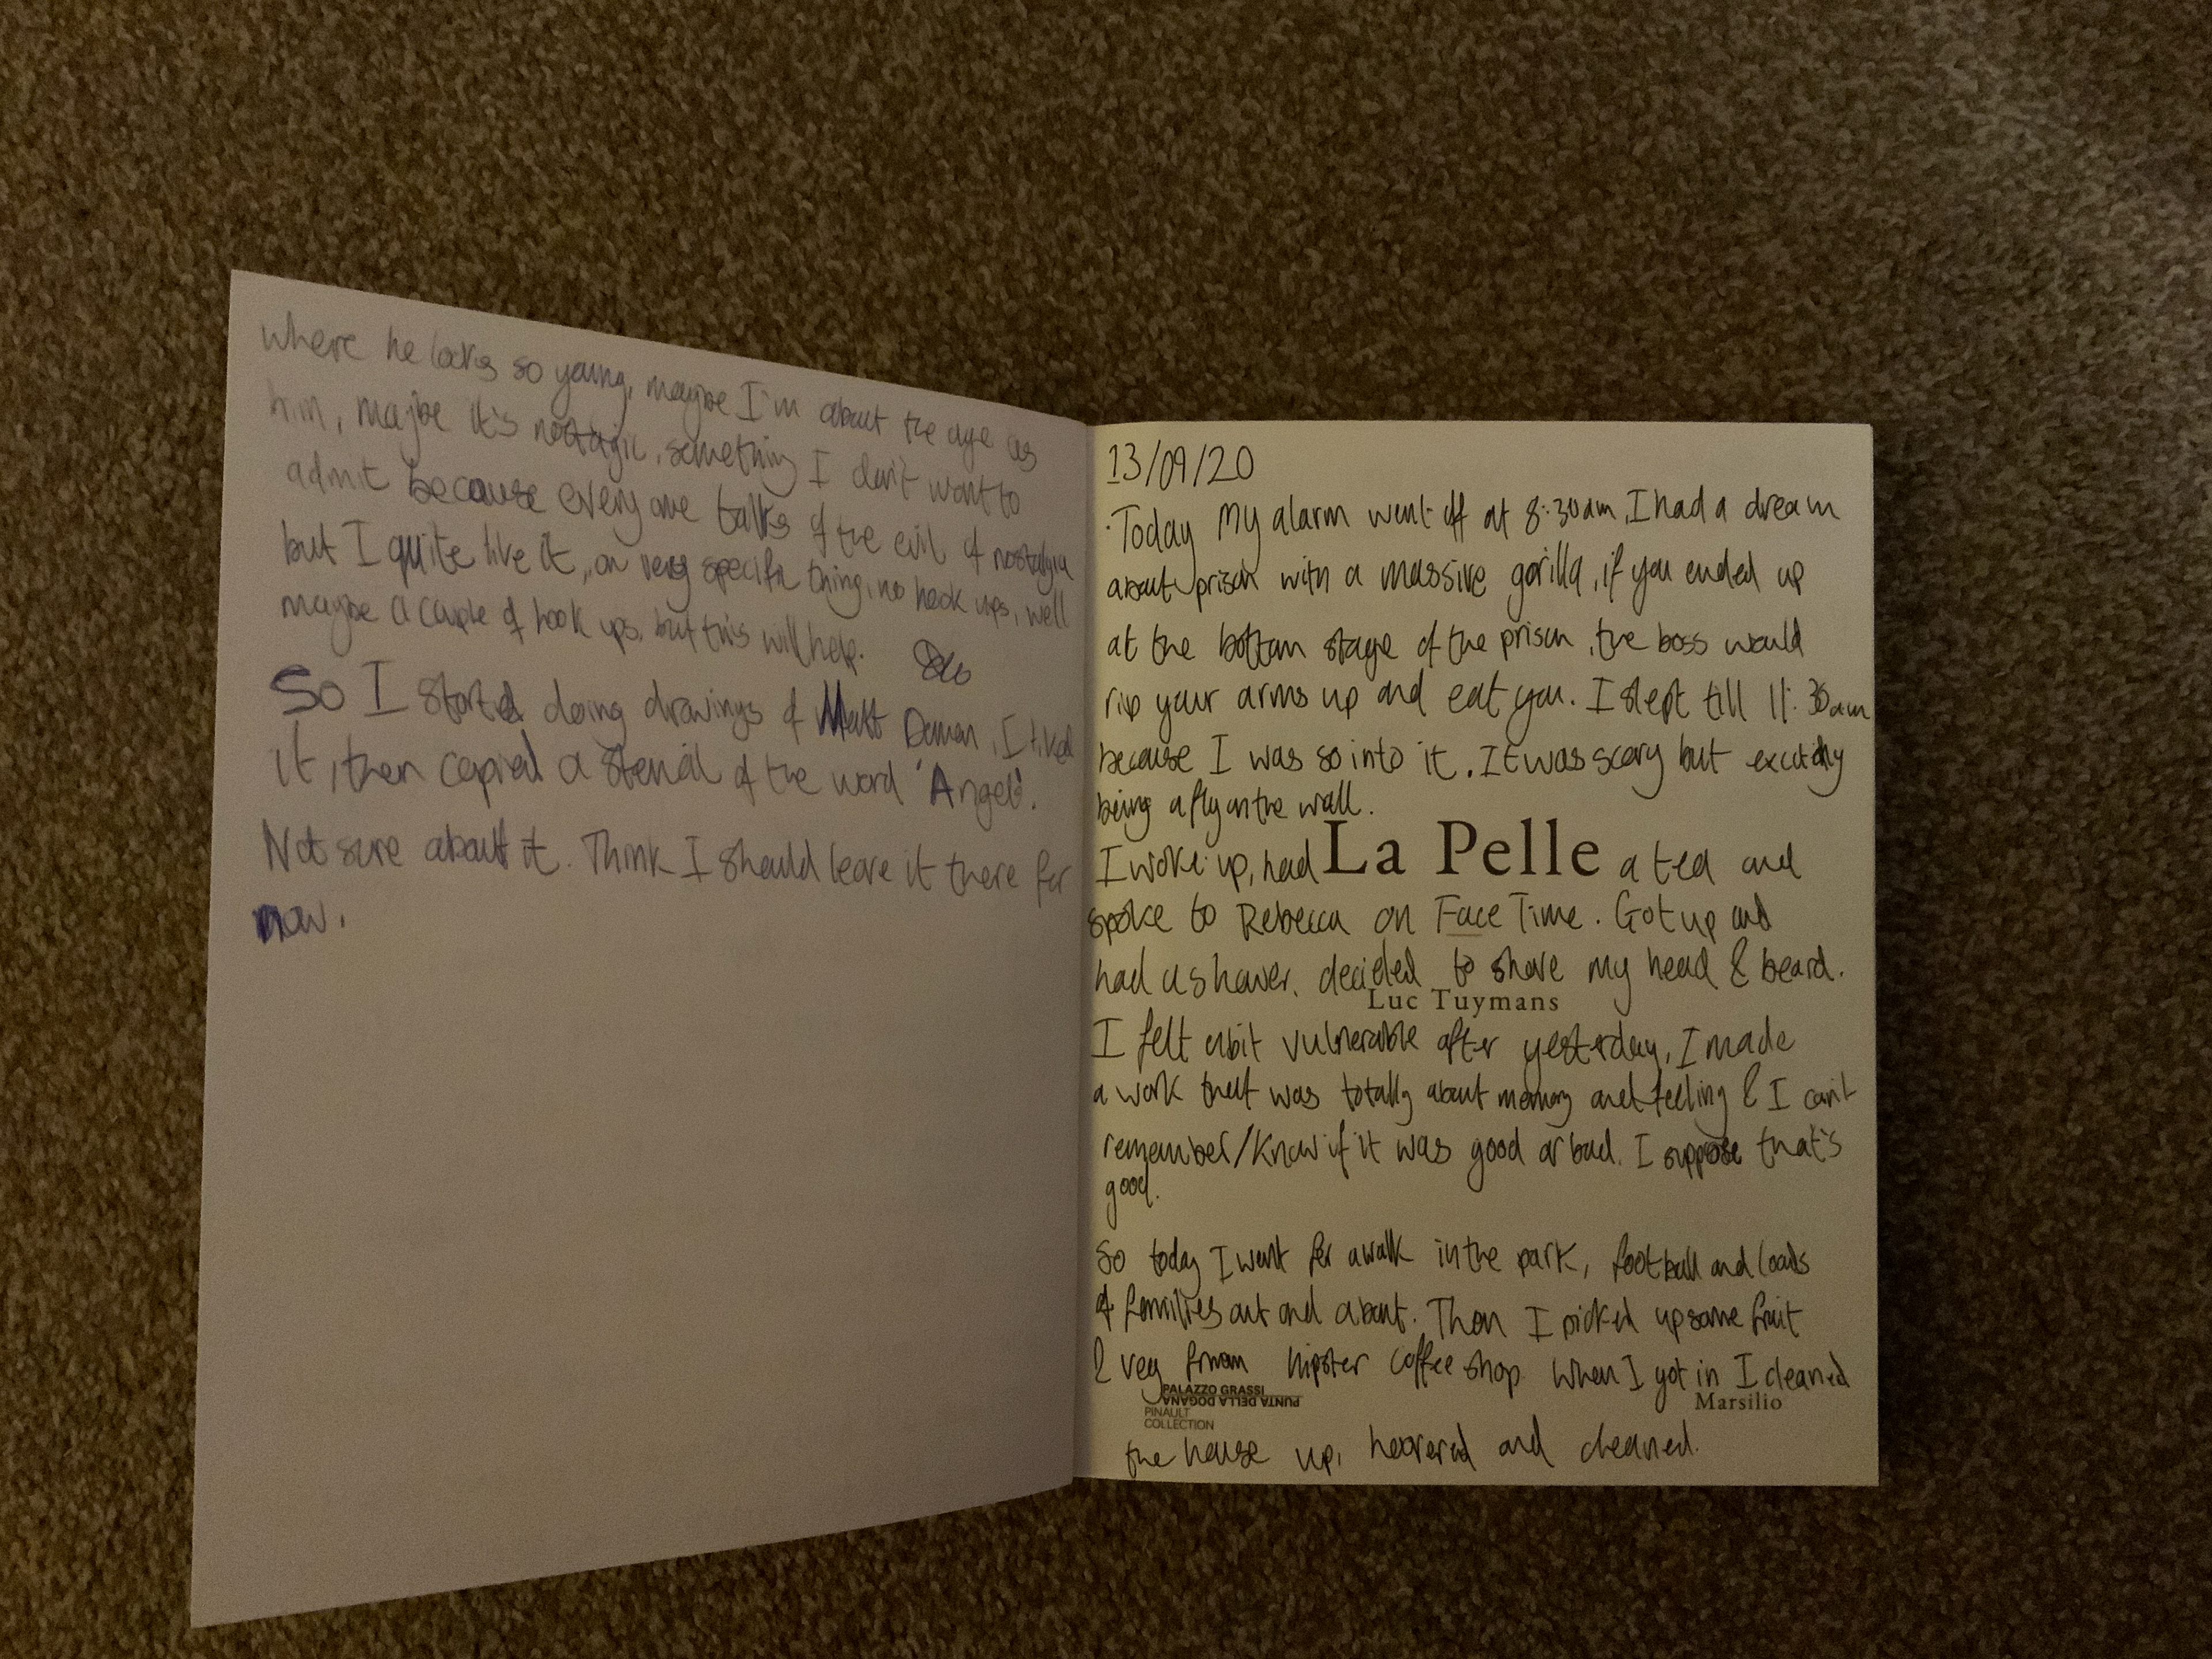 where he looks so young, maybe I'm about the age as
him, maybe it's nostagic, something I don't want to
admit because everyone talks of the evil of nostalgia
but I quite like it, on very specific thing, no hook ups, well
maybe a couple of hook ups, but this will help.
So I started doing drawings of Matt Damon, I liked
it, then copied a stencil of the word 'Angel'.
Not sure about it. Think I should leave it there for
now.
13/09/20
Today My alarm went off at 8:30am, I had a dream
about prison with a massive gorilla, if you ended up
at the bottom stage of the prison, the boss would
rip your arms up and eat you. I slept till 11:30am
because I was so into it. It was scary but
being a fly on the wall.
I woke up, had La Pelle a tea and
spoke to Rebecca on FaceTime. Got up and
had a shower, decided to shave my head & beard.
Luc Tuymans
I felt abit vulnerable after yesterday, I made
a work that was totally about memory and feeling & I can't
remember/know if it was good or bad. I suppose that's
good.
So today I went for a walk in the park, football and loads
of families out and about. Then I picked up some fruit
& veg from hipster coffee shop. When I got in I cleaned
PALAZZO GRASSI
PUNTA DELLA DOGANA
PINAULT
COLLECTION
Marsilio
the house up, hoovered and cleaned.